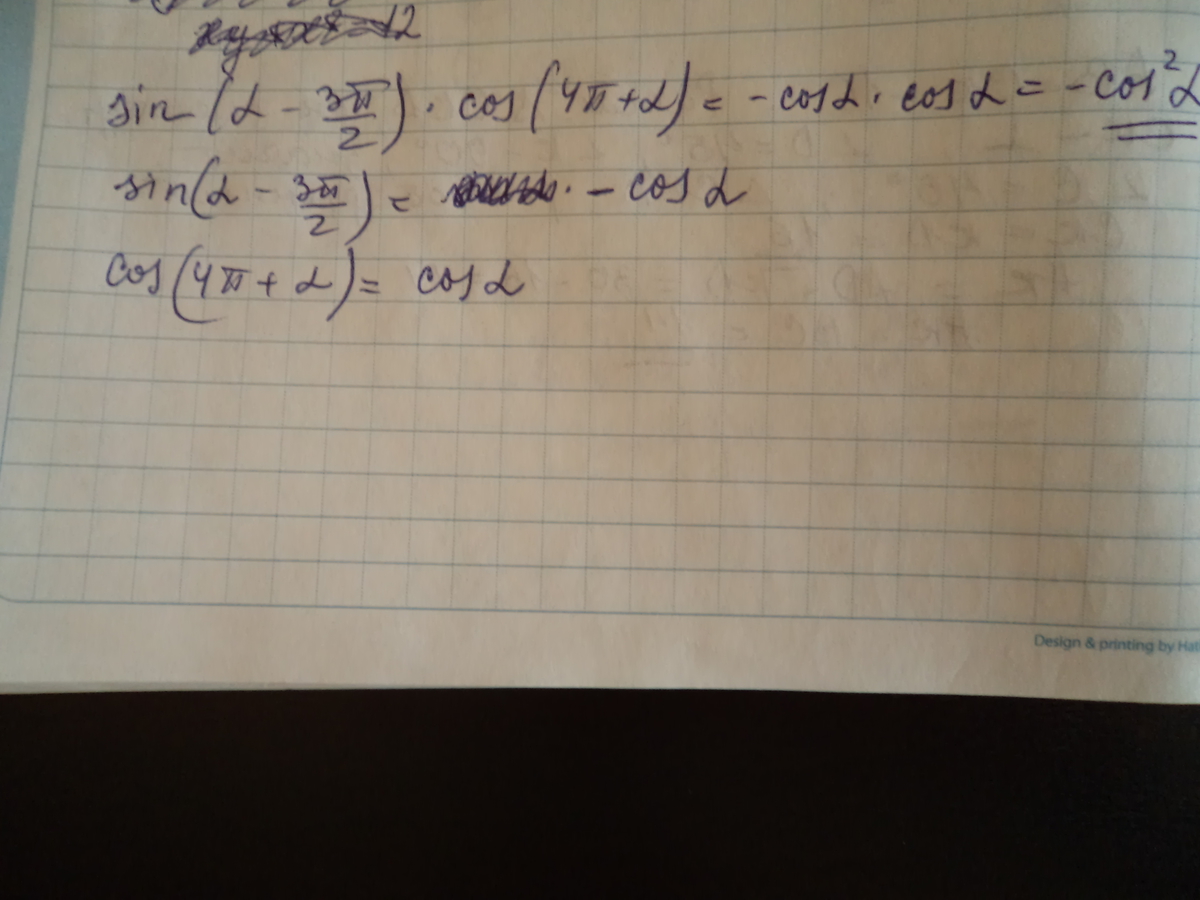 sin(α - 3π/2) · cos(4π+α) = - cosα · cosα = - cos²α
sin(α - 3π/2) = · - cosα
cos(4π + α) = cosα
Design & printing by Hat